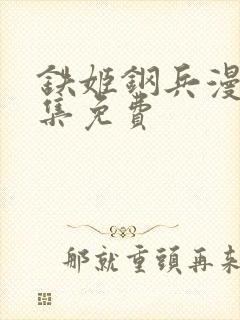 鉄姬鋼兵漫
集免費
那就重頭再来